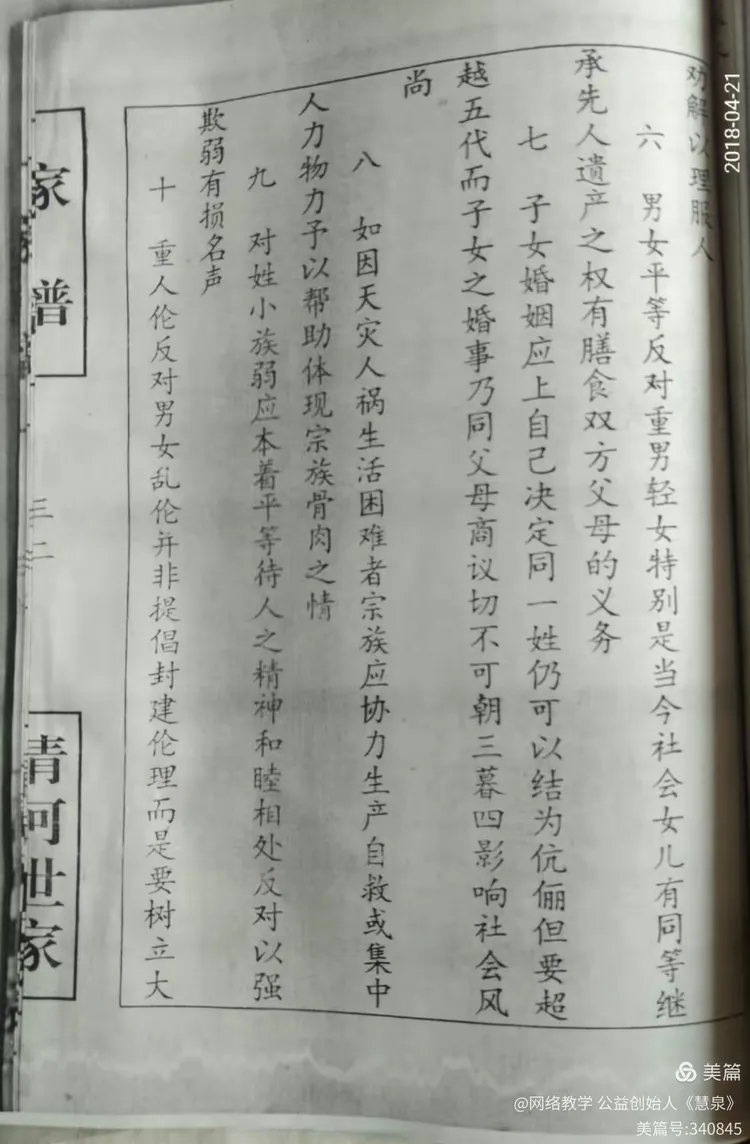 劝解以理服人
六 男女平等反对重男轻女特别是当今社会女儿有同等继
承先人遗产之权有膳食双方父母的义务
七 子女婚姻应上自己决定同一姓仍可以结为伉俪但要超
越五代而子女之婚事乃同父母商议切不可朝三暮四影响社会风
尚
八 如因天灾人祸生活困难者宗族应协力生产自救或集中
人力物力予以帮助体现宗族骨肉之情
九 对姓小族弱应本着平等待人之精神和睦相处反对以强
欺弱有损名声
十 重人伦反对男女乱伦并非提倡封建伦理而是要树立大
家谱
三二
清河世家
2018-04-21
美篇
@网络教学 公益创始人《慧泉》
美篇号:340845